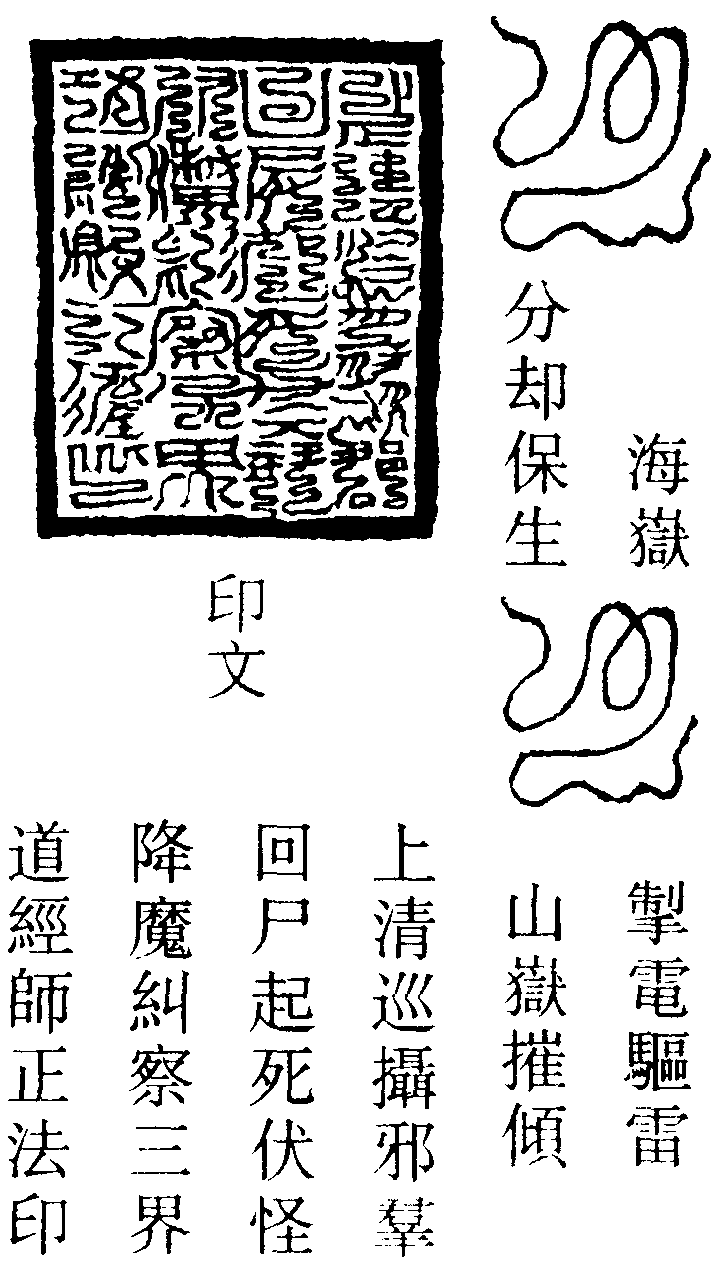 海嶽
掣電驅雷
分却保生
山嶽摧傾
印文
上清巡攝邪羣
回尸起死伏怪
降魔糾察三界
道經師正法印